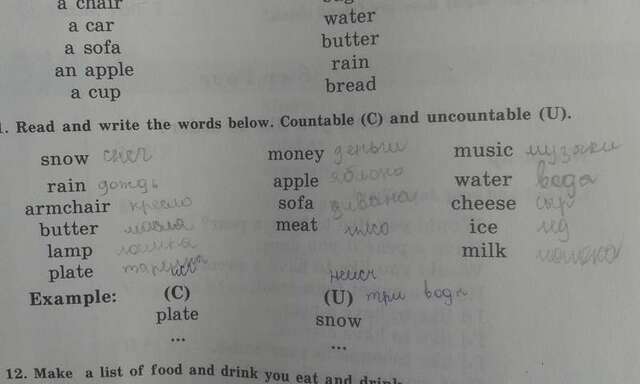 a chair
a car
a sofa
an apple
a cup
water
butter
rain
bread
1. Read and write the words below. Countable (C) and uncountable (U).
snow снег money деньги music музыки
rain дождь apple яблоко water вода
armchair кресло sofa дивана cheese сыр
butter масла meat мясо ice лёд
lamp лампа milk молоко
plate тарелка
Example: (C) (U) три вода
plate snow
... ...
12. Make a list of food and drink you eat and drink